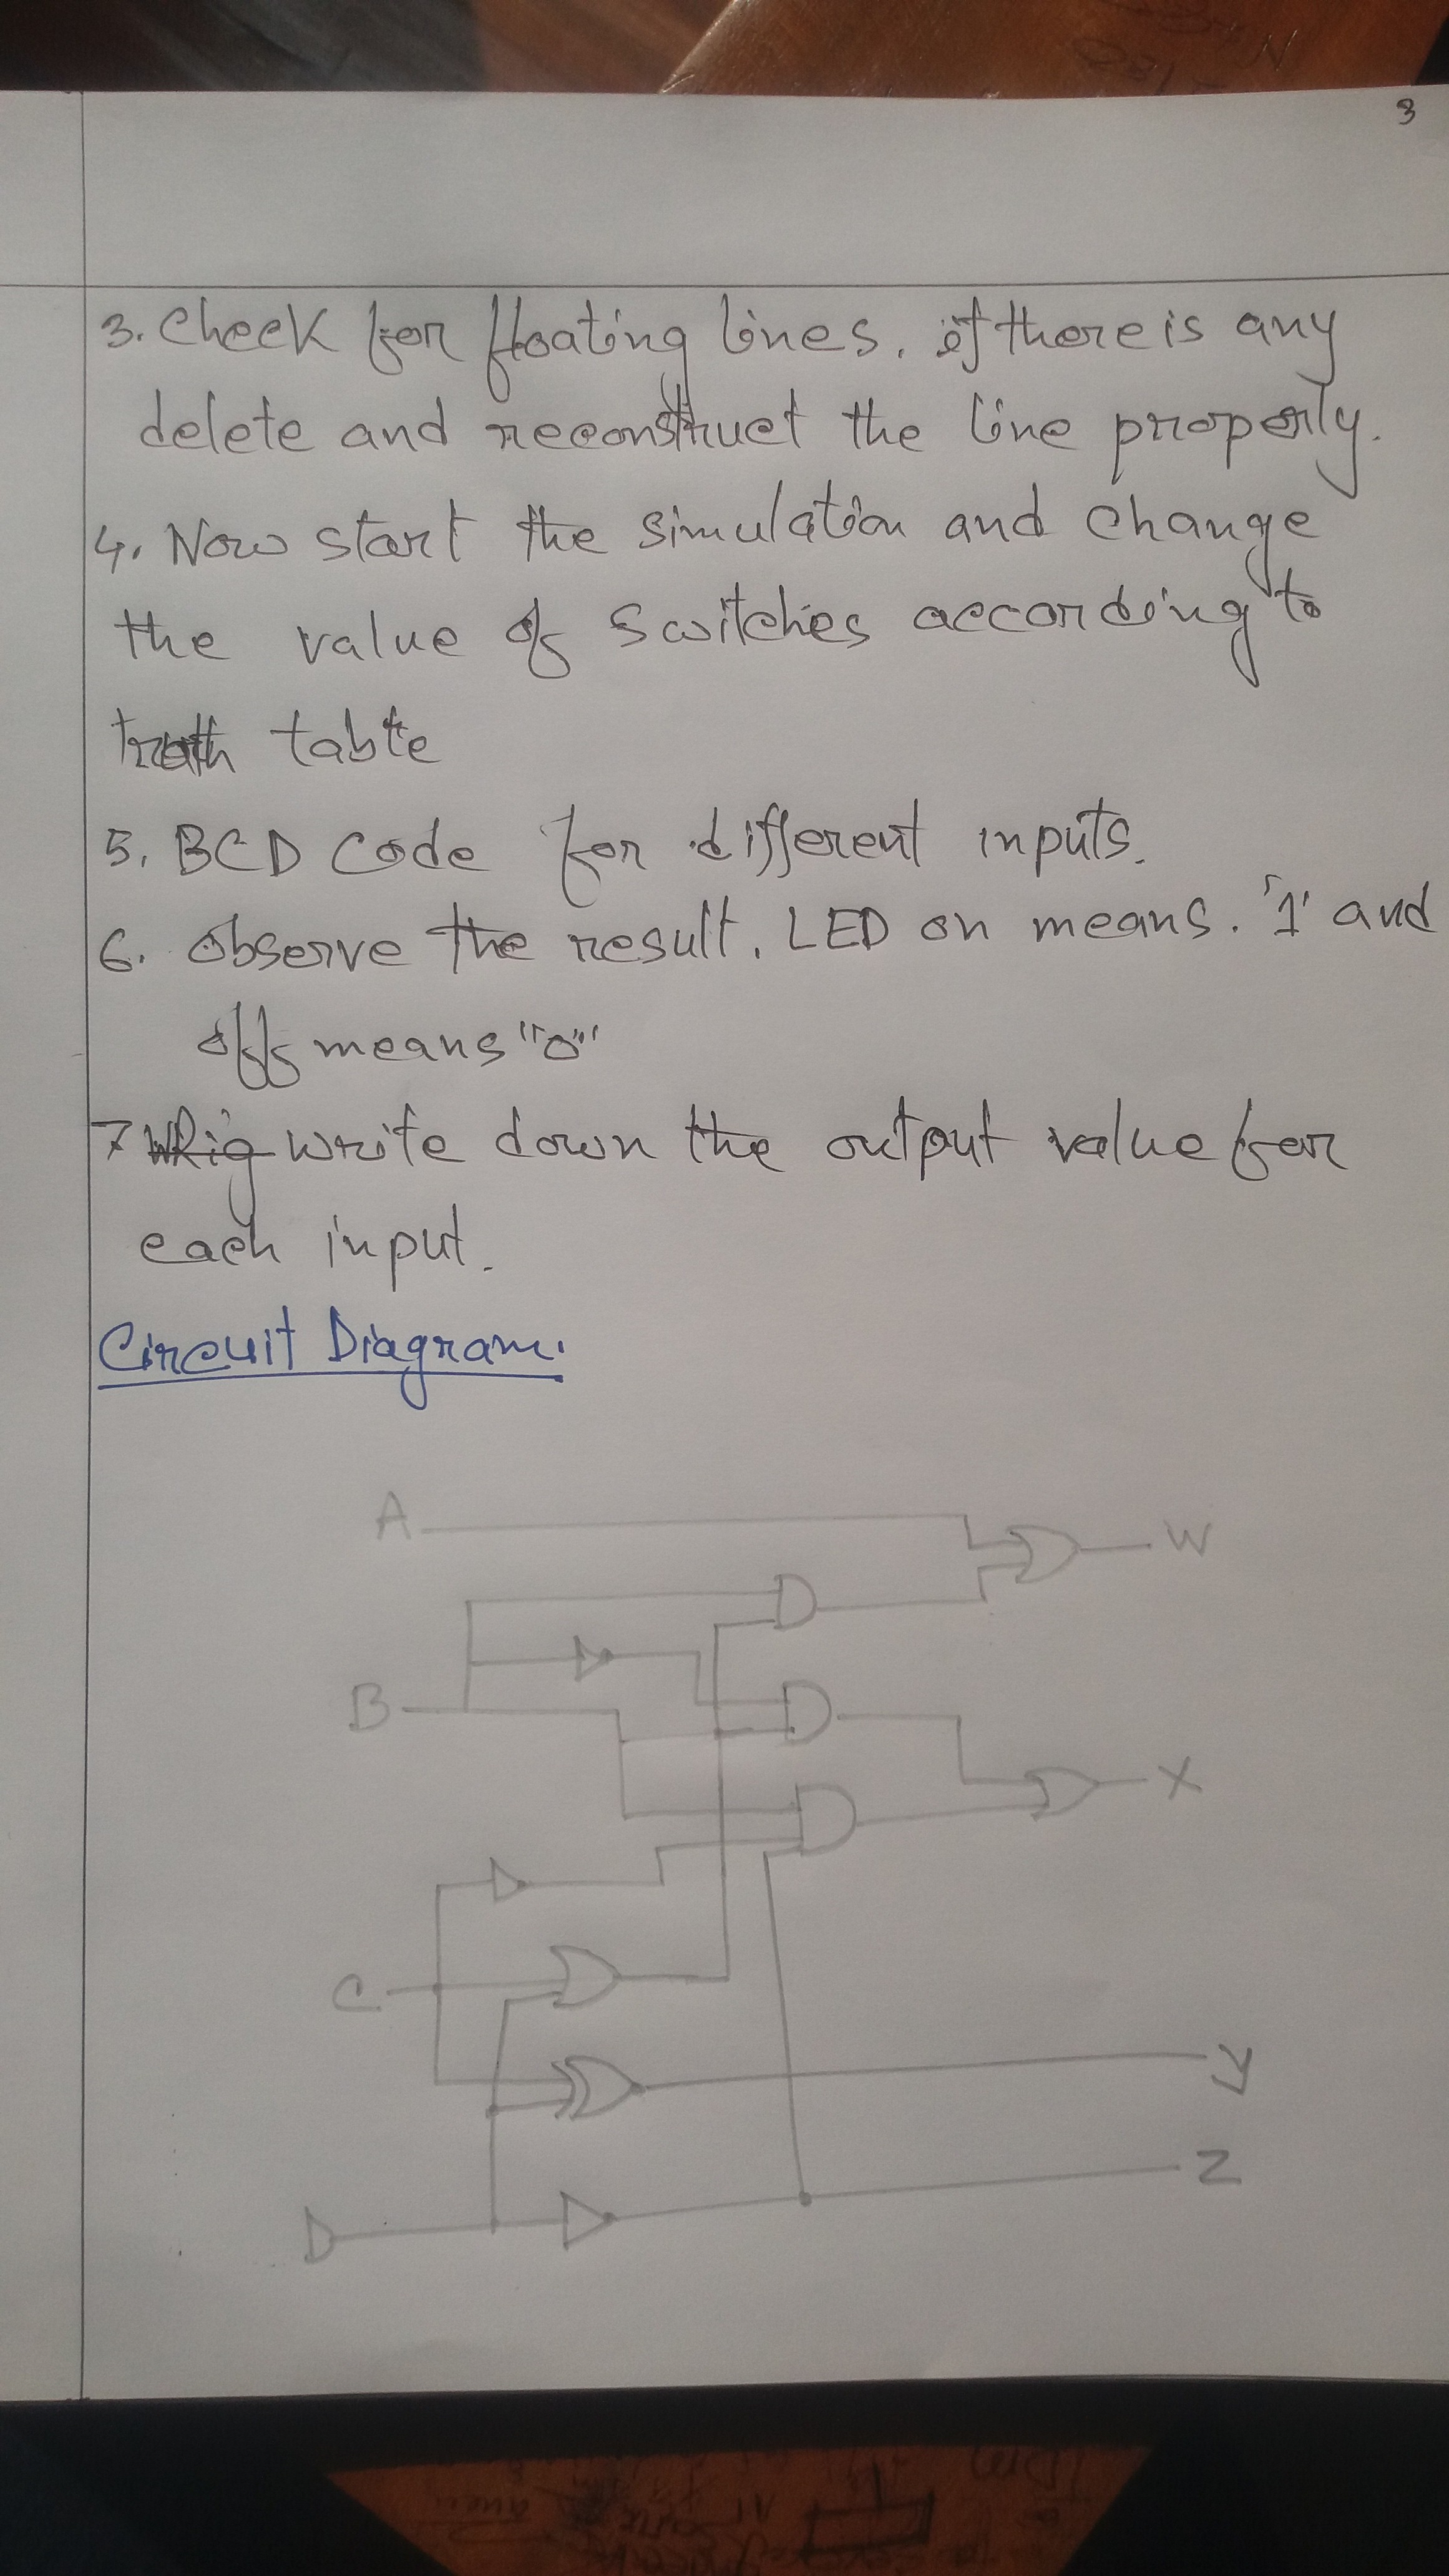 3
3. Check for floating lines. if there is any
delete and reconstruct the line properly.
4. Now start the simulation and change
the value of Switches according to
truth table
5. BCD Code for different inputs.
6. Observe the result. LED on means. '1' and
off means "0"
7 write down the output value for
each input.
Circuit Diagram.
A
W
B
X
C
y
Z
D